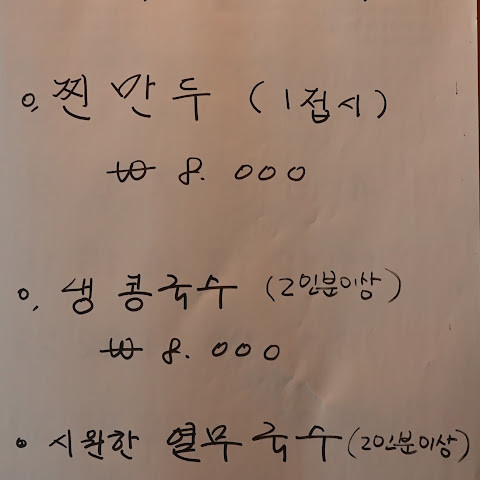 o. 찐만두 (1접시)
₩ 8.000
o. 생콩국수 (2인분이상)
₩ 8.000
• 시원한 열무국수 (2인분이상)